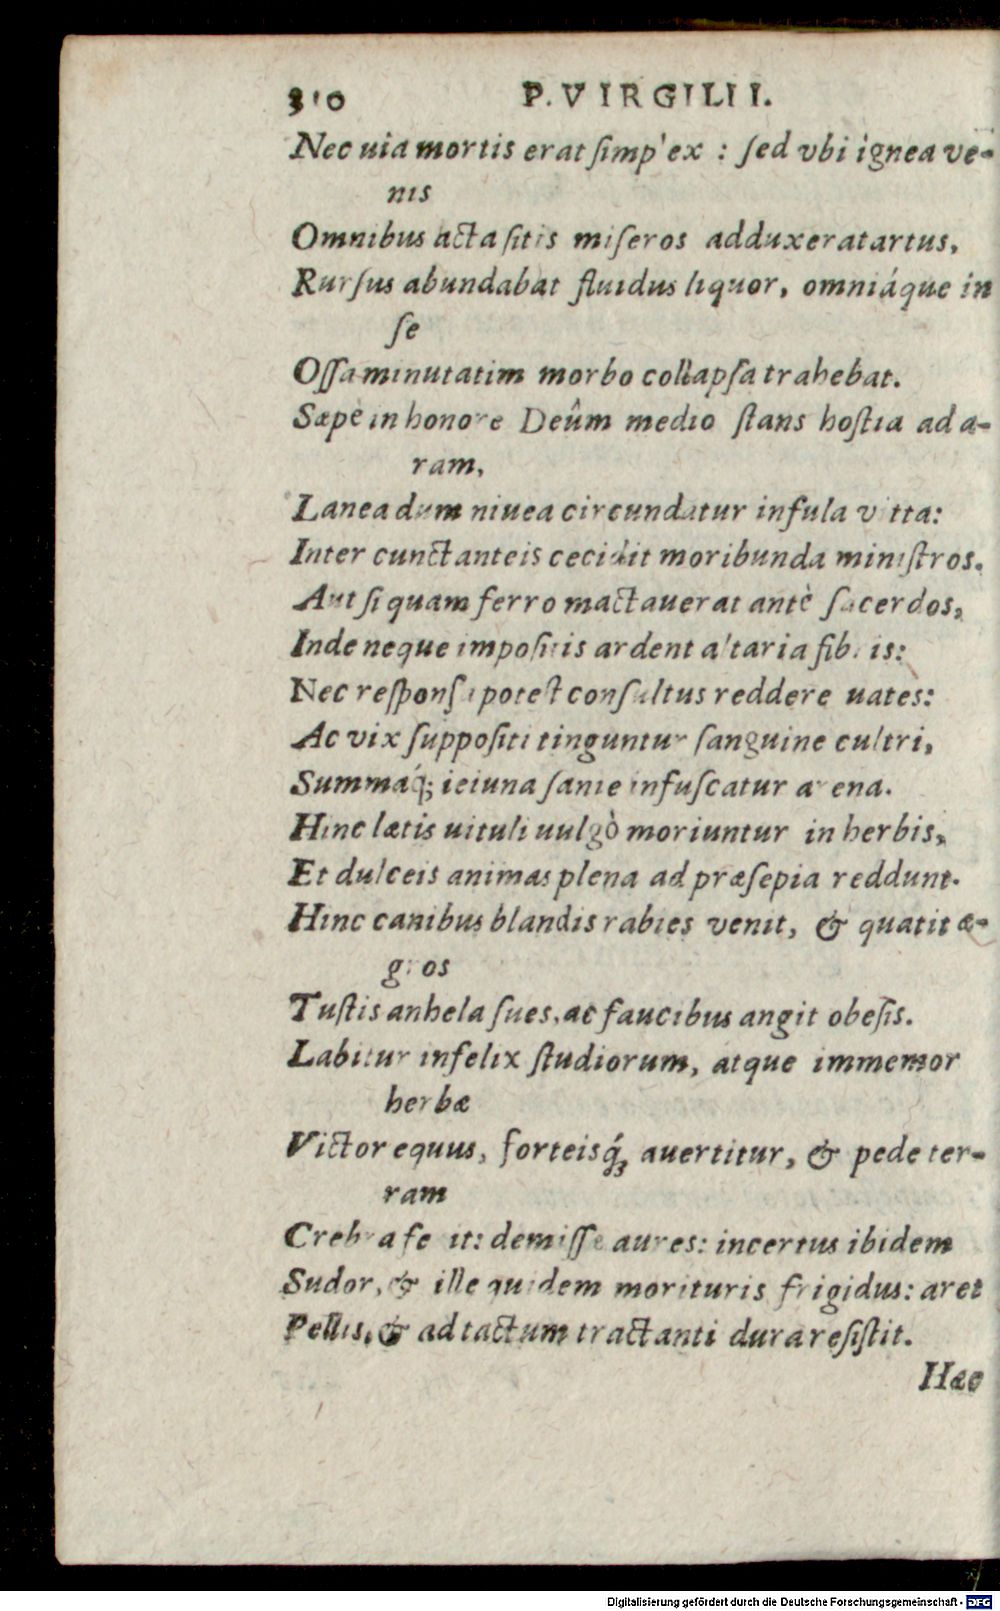 310 P. VIRGILII.
Nec uia mortis erat ſimplex : ſed vbi ignea ve-
nis
Omnibus acta ſitis miſeros adduxerat artus,
Rurſus abundabat fluidus liquor, omniáque in
ſe
Oſſa minutatim morbo collapſa trahebat.
Sæpè in honore Deûm medio ſtans hoſtia ad a-
ram,
Lanea dum niuea circundatur infula vitta:
Inter cunctanteis cecidit moribunda miniſtros.
Aut ſi quam ferro mactauerat antè ſacerdos,
Inde neque impoſitis ardent altaria fibris:
Nec reſponſa poteſt conſultus reddere uates:
Ac vix ſuppoſiti tinguntur ſanguine cultri,
Summáq; ieiuna ſanie infuſcatur arena.
Hinc lætis uituli uulgò moriuntur in herbis,
Et dulceis animas plena ad præſepia reddunt.
Hinc canibus blandis rabies venit, & quatit æ-
gros
Tuſtis anhela ſues, ac faucibus angit obeſis.
Labitur infelix ſtudiorum, atque immemor
herbæ
Victor equus, forteisq́; auertitur, & pede ter-
ram
Crebra ferit: demiſſe aures: incertus ibidem
Sudor, & ille quidem morituris frigidus: aret
Pellis, & ad tactum tractanti dura reſiſtit.
Hæc
Digitalisierung gefördert durch die Deutsche Forschungsgemeinschaft - DFG